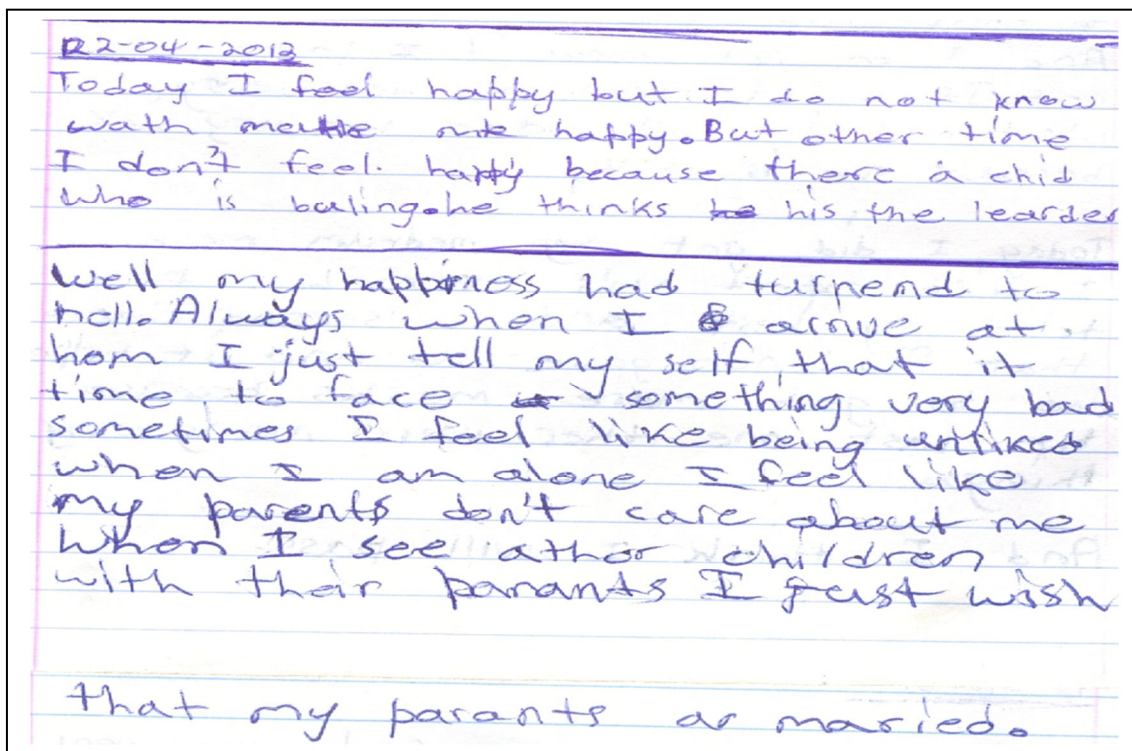 22-04-2012
Today I feel happy but I do not know
wath me happy. But other time
I don't feel. happy because there a chid
who is buling. he thinks his the leardes
Well my happiness had turnend to
hell. Always when I arrive at
hom I just tell my self, that it
time to face something very bad
sometimes I feel like being unliked
when I am alone I feel like
my parents don't care about me
When I see athor children
with their parants I just wish
that my parants ar maried.